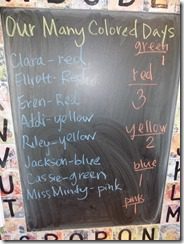 Our Many Colored Days
Clara-red
Elliott-Red
Eren-Red
Addi-yellow
Riley-yellow
Jackson-blue
Cassie-green
Miss Mindy-pink
green
1
red
3
yellow
2
blue
1
pink